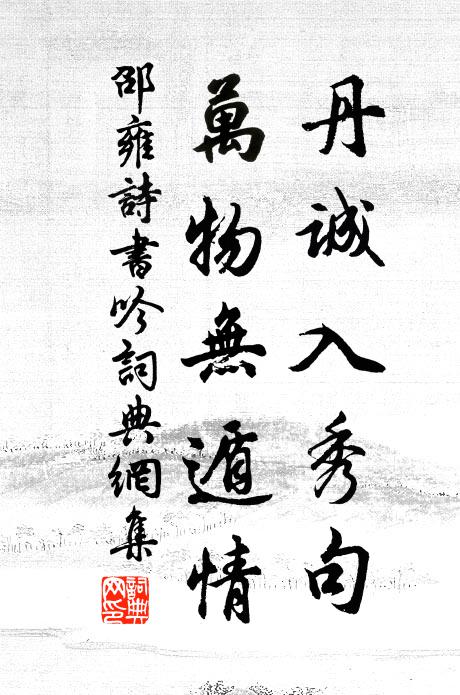 丹誠入秀句
萬物無遁情
邵雍詩書吟詞典網集
詞典网印